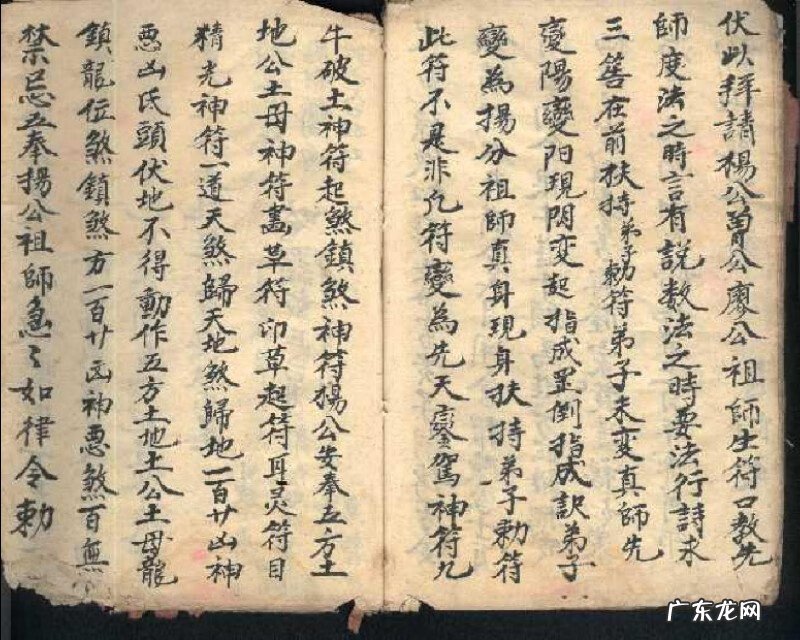 伏以拜請楊公曾公廖公祖師生符口教先
師度法之時言有說教法之時要法行詩求
三笤在前扶持弟子勅符弟子未变真師先
变陽變阳現閃变起指成罡倒指成訣弟子
變為揚分祖師真身現身扶持弟子勅符
此符不是非凢符變為先天鑾駕神符九
牛破土神符起煞鎮煞神符揚公安奉五方土
地公土母神符畵草符卬草起符耳灵符目
精光神符一道天煞歸天地煞歸地一百廿凶神
悪凶氏頭伏地不得動作五方土地土公土母龍
鎮龍位煞鎮煞方一百廿凶神悪煞百無
禁忌五奉揚公祖師急々如律令勅
广东龙网